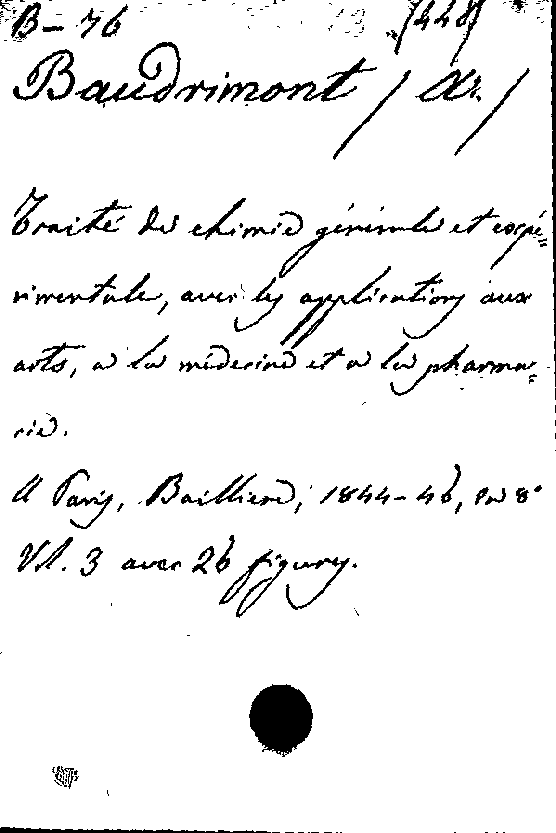 B-76 (448)
Baudrimont / A. /
Traité de chimie générale et expé=
rimentale, avec les applications aux
arts, a la médecine et a la pharma=
cie.
A Paris, Bailliere, 1844-46, in 8°
Vol. 3 avec 26 figures.